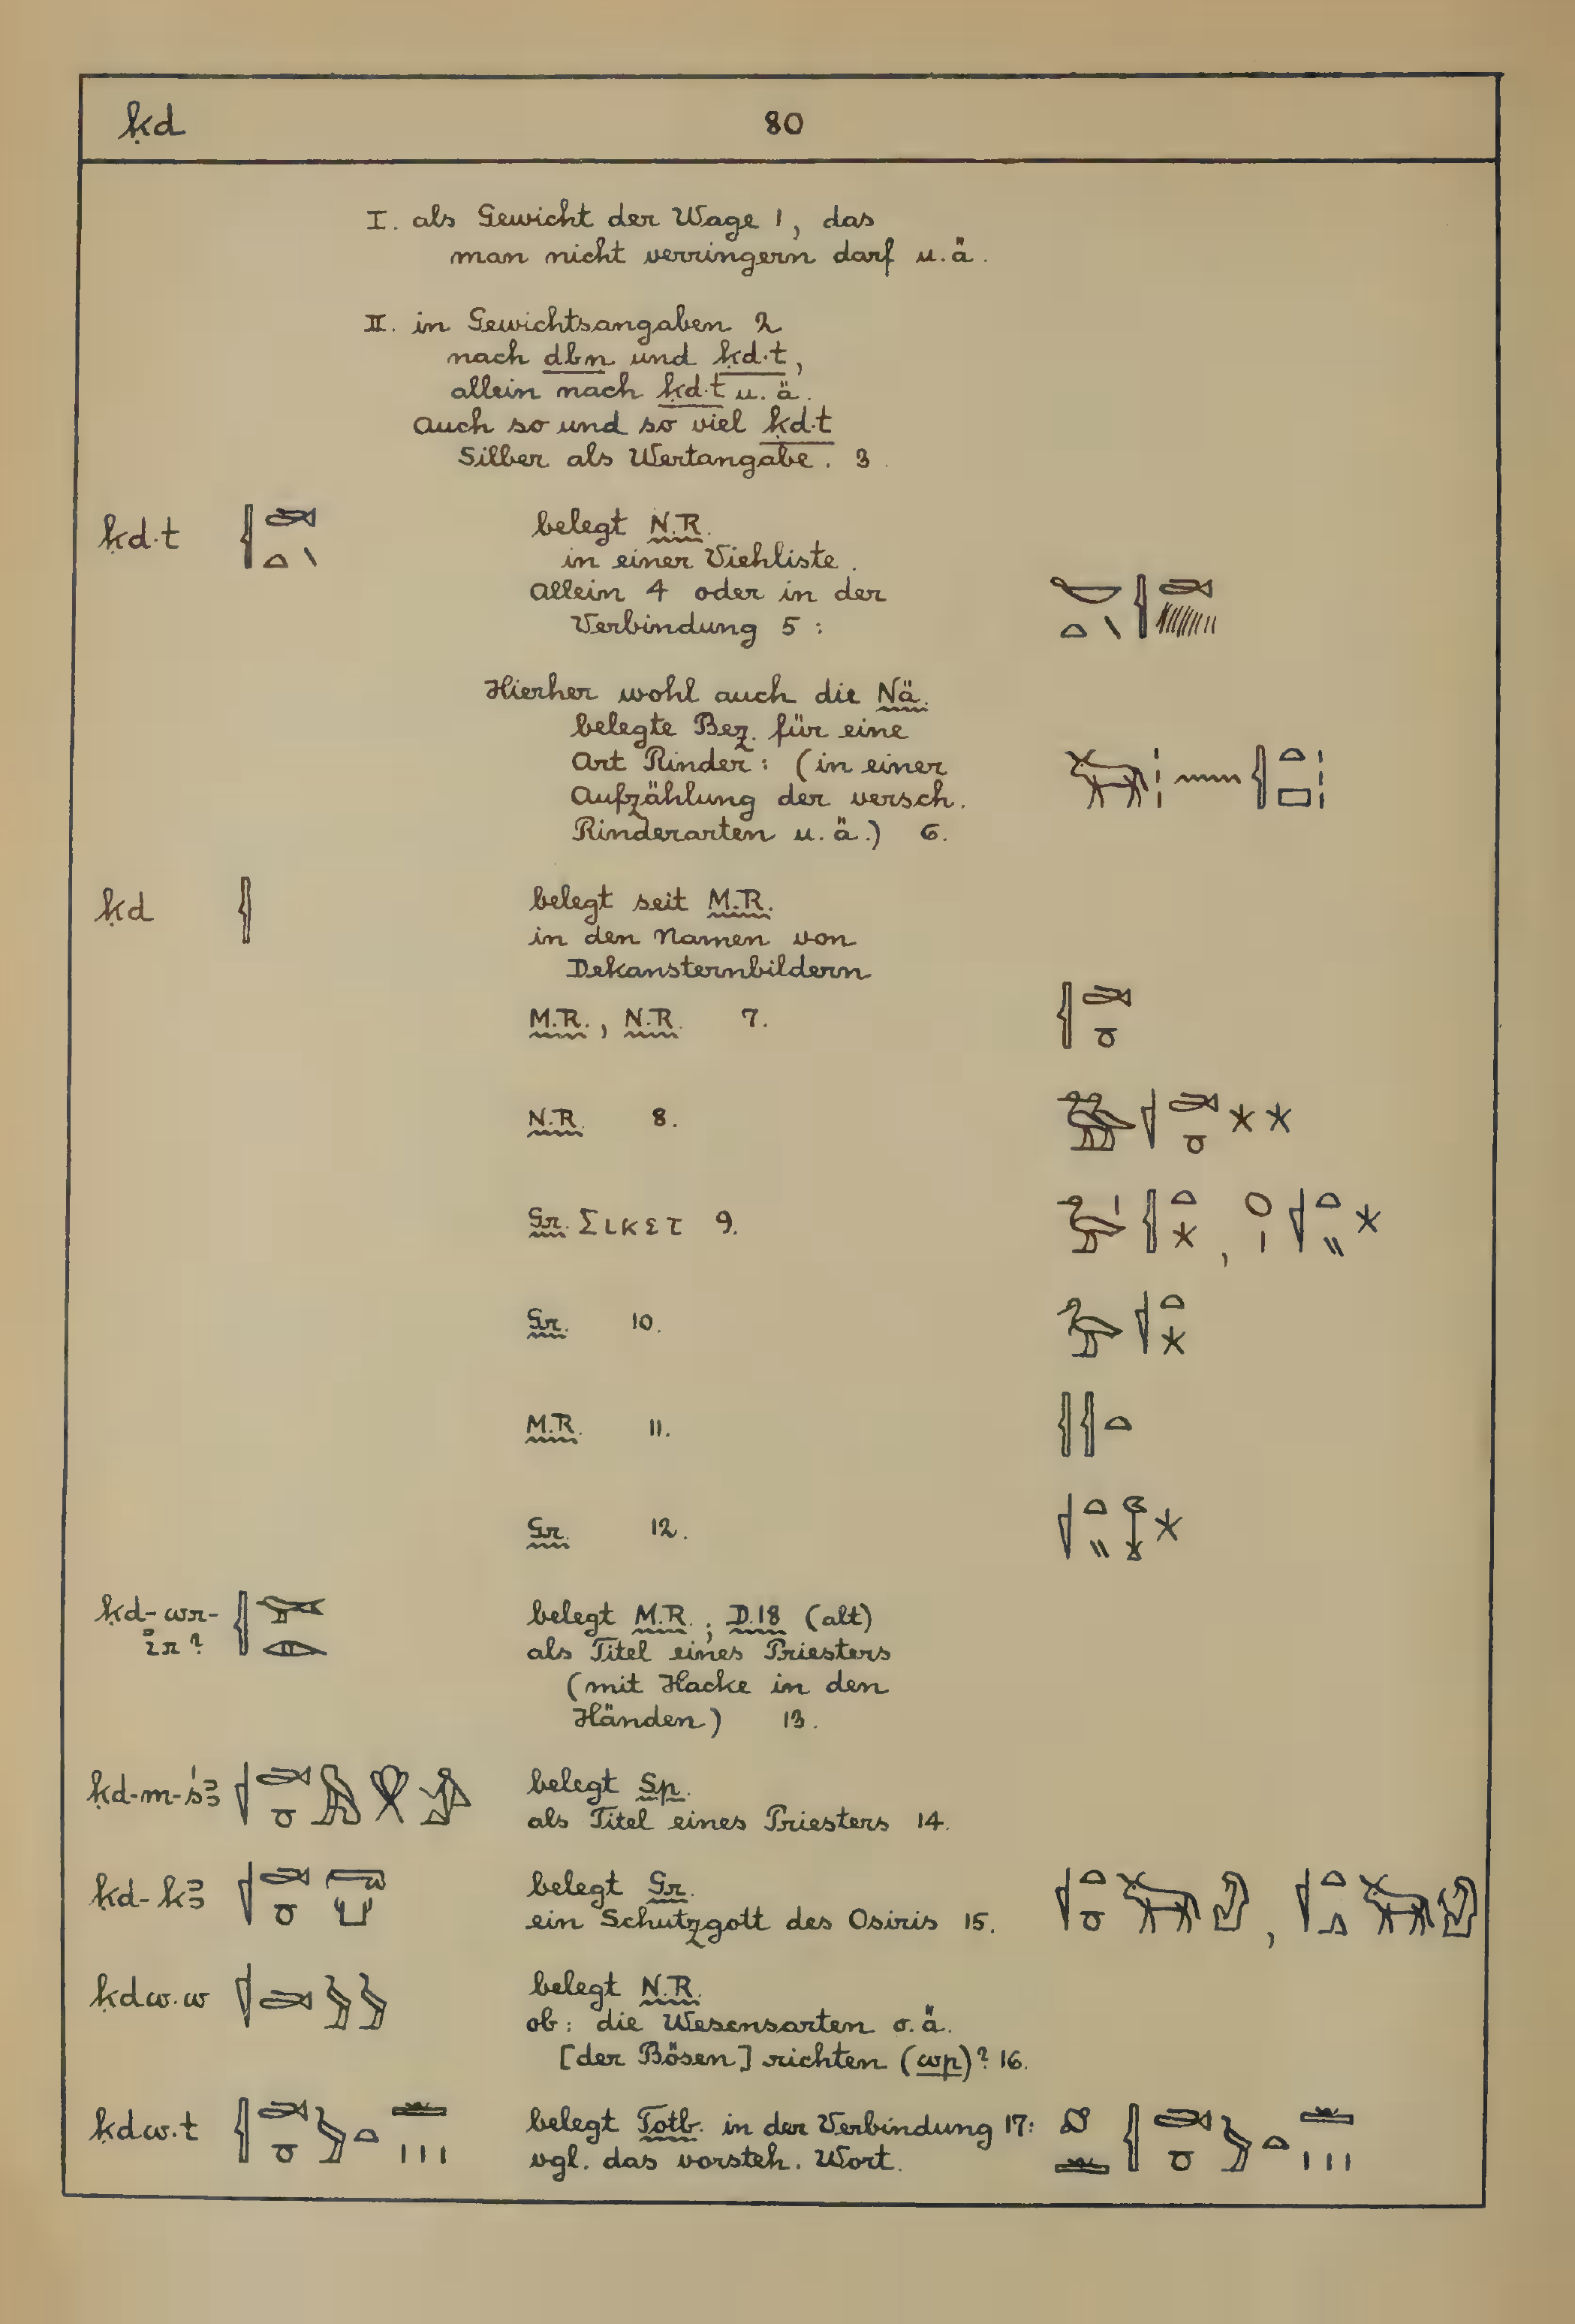 ḳd 80
I. als Gewicht der Wage 1, das
man nicht verringern darf u.ä.
II. in Gewichtsangaben 2
nach dbn und ḳd.t,
allein nach ḳd.t u.ä.
Auch so und so viel ḳd.t
Silber als Wertangabe. 3
ḳd.t belegt N.R.
in einer Viehliste.
allein 4 oder in der
Verbindung 5:
Hierher wohl auch die Nä.
belegte Bez. für eine
Art Rinder: (in einer
Aufzählung der versch.
Rinderarten u.ä.) 6.
ḳd belegt seit M.R.
in den Namen von
Dekansternbildern
M.R., N.R. 7.
N.R. 8.
Gr. Σικετ 9.
Gr. 10.
M.R. 11.
Gr. 12.
ḳd-wr- belegt M.R.; D.18 (alt)
ỉr? als Titel eines Priesters
(mit Hacke in den
Händen) 13.
ḳd-m-śꜣ belegt Sp.
als Titel eines Priesters 14.
ḳd-kꜣ belegt Gr.
ein Schutzgott des Osiris 15.
ḳdw.w belegt N.R.
ob: die Wesensarten o.ä.
[der Bösen] richten (wp)? 16.
ḳdw.t belegt Totb. in der Verbindung 17:
vgl. das vorsteh. Wort.